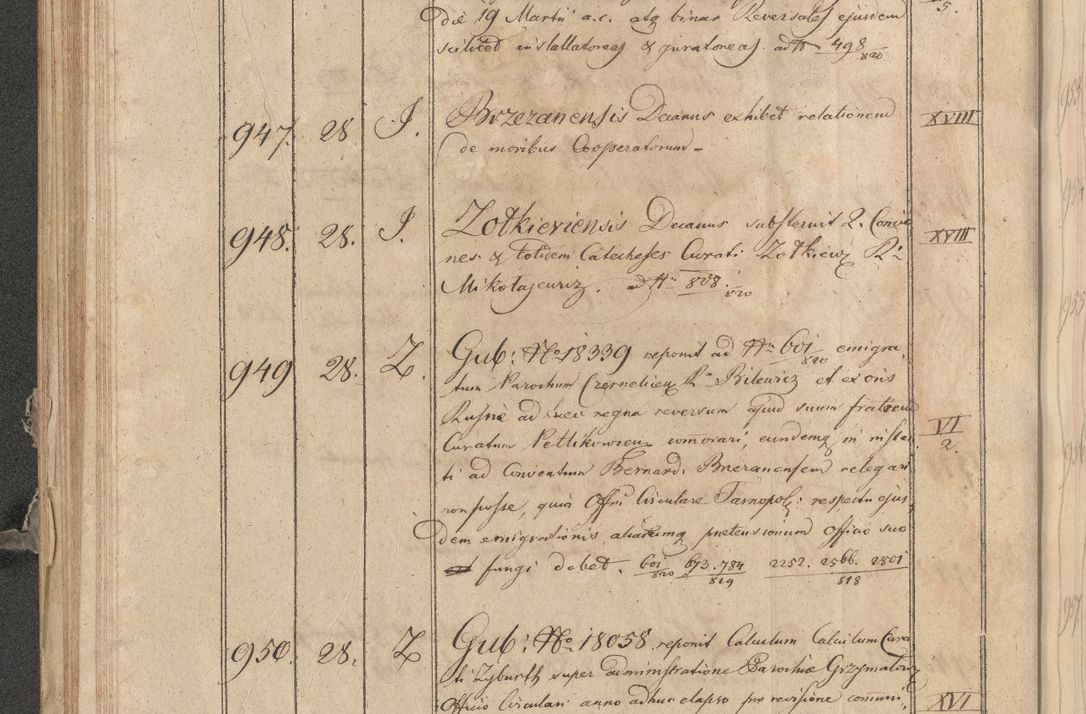 die 19 Martii a.c. atq binas Reversales ejusdem 5.
scilicet installatoreas & juratoreas. ad N 498/820
947. 28 J. Brzezanensis Decanus exhibet relationem XVIII
de moribus Cooperatorum -
948. 28. J. Zolkieviensis Decanus substernit 2. Concio XVIII
nes & totidem Catecheses Curati Zolkiew R
Mikolajewicz. ad N 808./820
949 28. Z. Gub: No 18339 reponit ad N 601/820 emigra
tum Parochum Czernelicen R Bilewicz et ex oris
ad haec regna reversum apud suum fratrem
Curatum Petlikowien comorari, eundemq in
ti ad Conventum Bernard. Brzezanensem relegari
non posse, quia Offii Circulare Tarnopol: respectu ejus
dem emigrationis aliarumq pretensionum officio suo
fungi debet. 601/820 673. 784/819 2252. 2566. 2801/818
VI
2.
950. 28. Z Gub: No 18058 reponit Calculum Calculum Cura
ti Zyburth super administratione Parochiae Grzymalow
Officio Circulari anno adhuc elapso pro revisione comuni, XVI